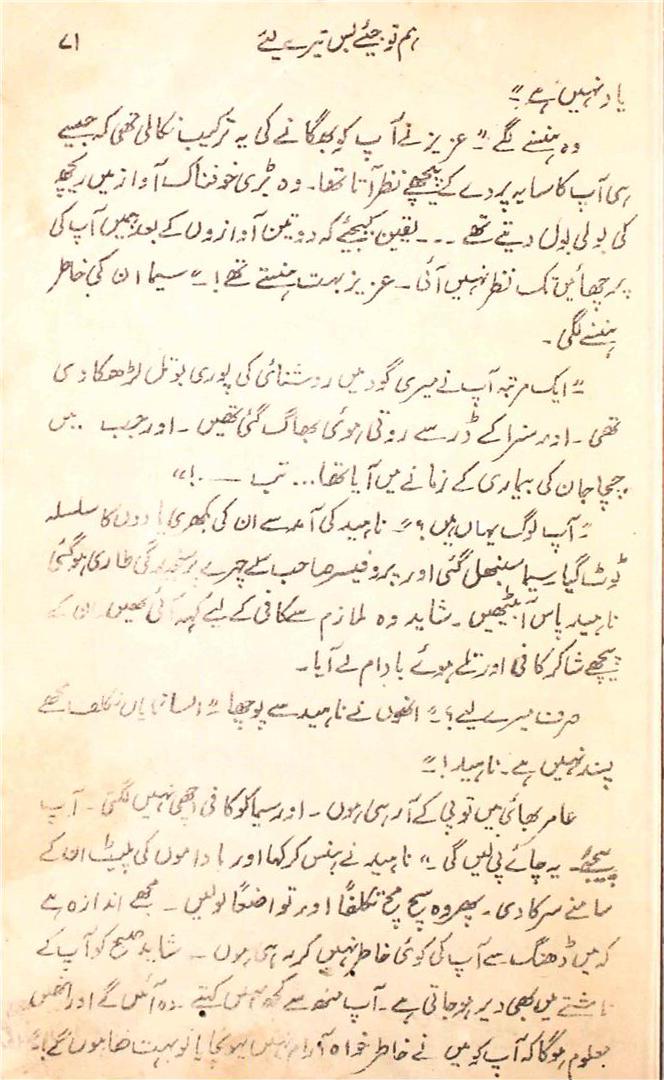 ہم تو جیئے بس تیرے لیئے ۷۱
یاد نہیں ہے۔"
وہ ہنسنے لگے "عزیز نے آپ کو بھگانے کی یہ ترکیب نکالی تھی کہ جیسے
ہی آپ کا سایہ پردے کے پیچھے نظر آتا تھا۔ وہ بڑی خوفناک آواز میں ریچھ
کی بولی بول دیتے تھے ۔۔۔ یقین کیجئے کہ دو تین آوازوں کے بعد ہمیں آپ کی
پرچھائیں تک نظر نہیں آئی۔ عزیز بہت ہنستے تھے!" سیما ان کی خاطر
ہنسنے لگی۔
"ایک مرتبہ آپ نے میری گود میں روشنائی کی پوری بوتل لڑھکا دی
تھی۔ اور سزا کے ڈر سے روتی ہوئی بھاگ گئی تھیں۔ اور جب میں
چچا جان کی بیماری کے زمانے میں آیا تھا... تب ــــ.!"
"آپ لوگ یہاں ہیں؟" ناہید کی آمد سے ان کی بکھری یادوں کا سلسلہ
ٹوٹ گیا سیما سنبھل گئی اور پروفیسر صاحب کے چہرے پر سنجیدگی طاری ہو گئی
ناہید پاس آ بیٹھیں۔ شاید وہ ملازم سے کافی کے لیے کہہ آئی تھیں۔ ان کے
پیچھے شاکر کافی اور تلے ہوئے بادام لے آیا۔
صرف میرے لیے؟" انھوں نے ناہید سے پوچھا "ایسا نمایاں تکلف مجھے
پسند نہیں ہے۔ ناہید!"
عامر بھائی میں تو پی کے آ رہی ہوں۔ اور سیما کو کافی اچھی نہیں لگتی۔ آپ
پیجئے۔ یہ چائے پی لیں گی۔" ناہید نے ہنس کر کہا اور باداموں کی پلیٹ ان کے
سامنے سرکا دی۔ پھر وہ سچ مچ تکلفاً اور تواضعاً بولیں۔ مجھے اندازہ ہے
کہ میں ڈھنگ سے آپ کی کوئی خاطر نہیں کر رہی ہوں۔ شاید صبح کو آپ کے
ناشتے میں بھی دیر ہو جاتی ہے۔ آپ منھ سے کچھ نہیں کہتے۔ وہ آئیں گے اور انھیں
معلوم ہو گا کہ آپ کو میں نے خاطر خواہ آرام نہیں پہونچایا تو بہت خفا ہوں گے